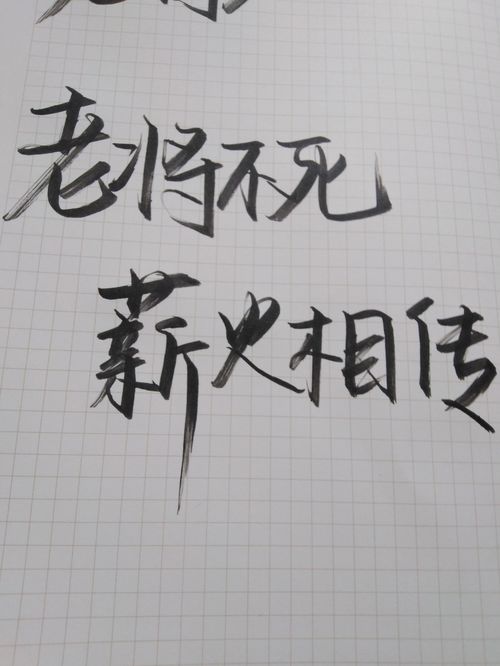 老将不死
薪火相传